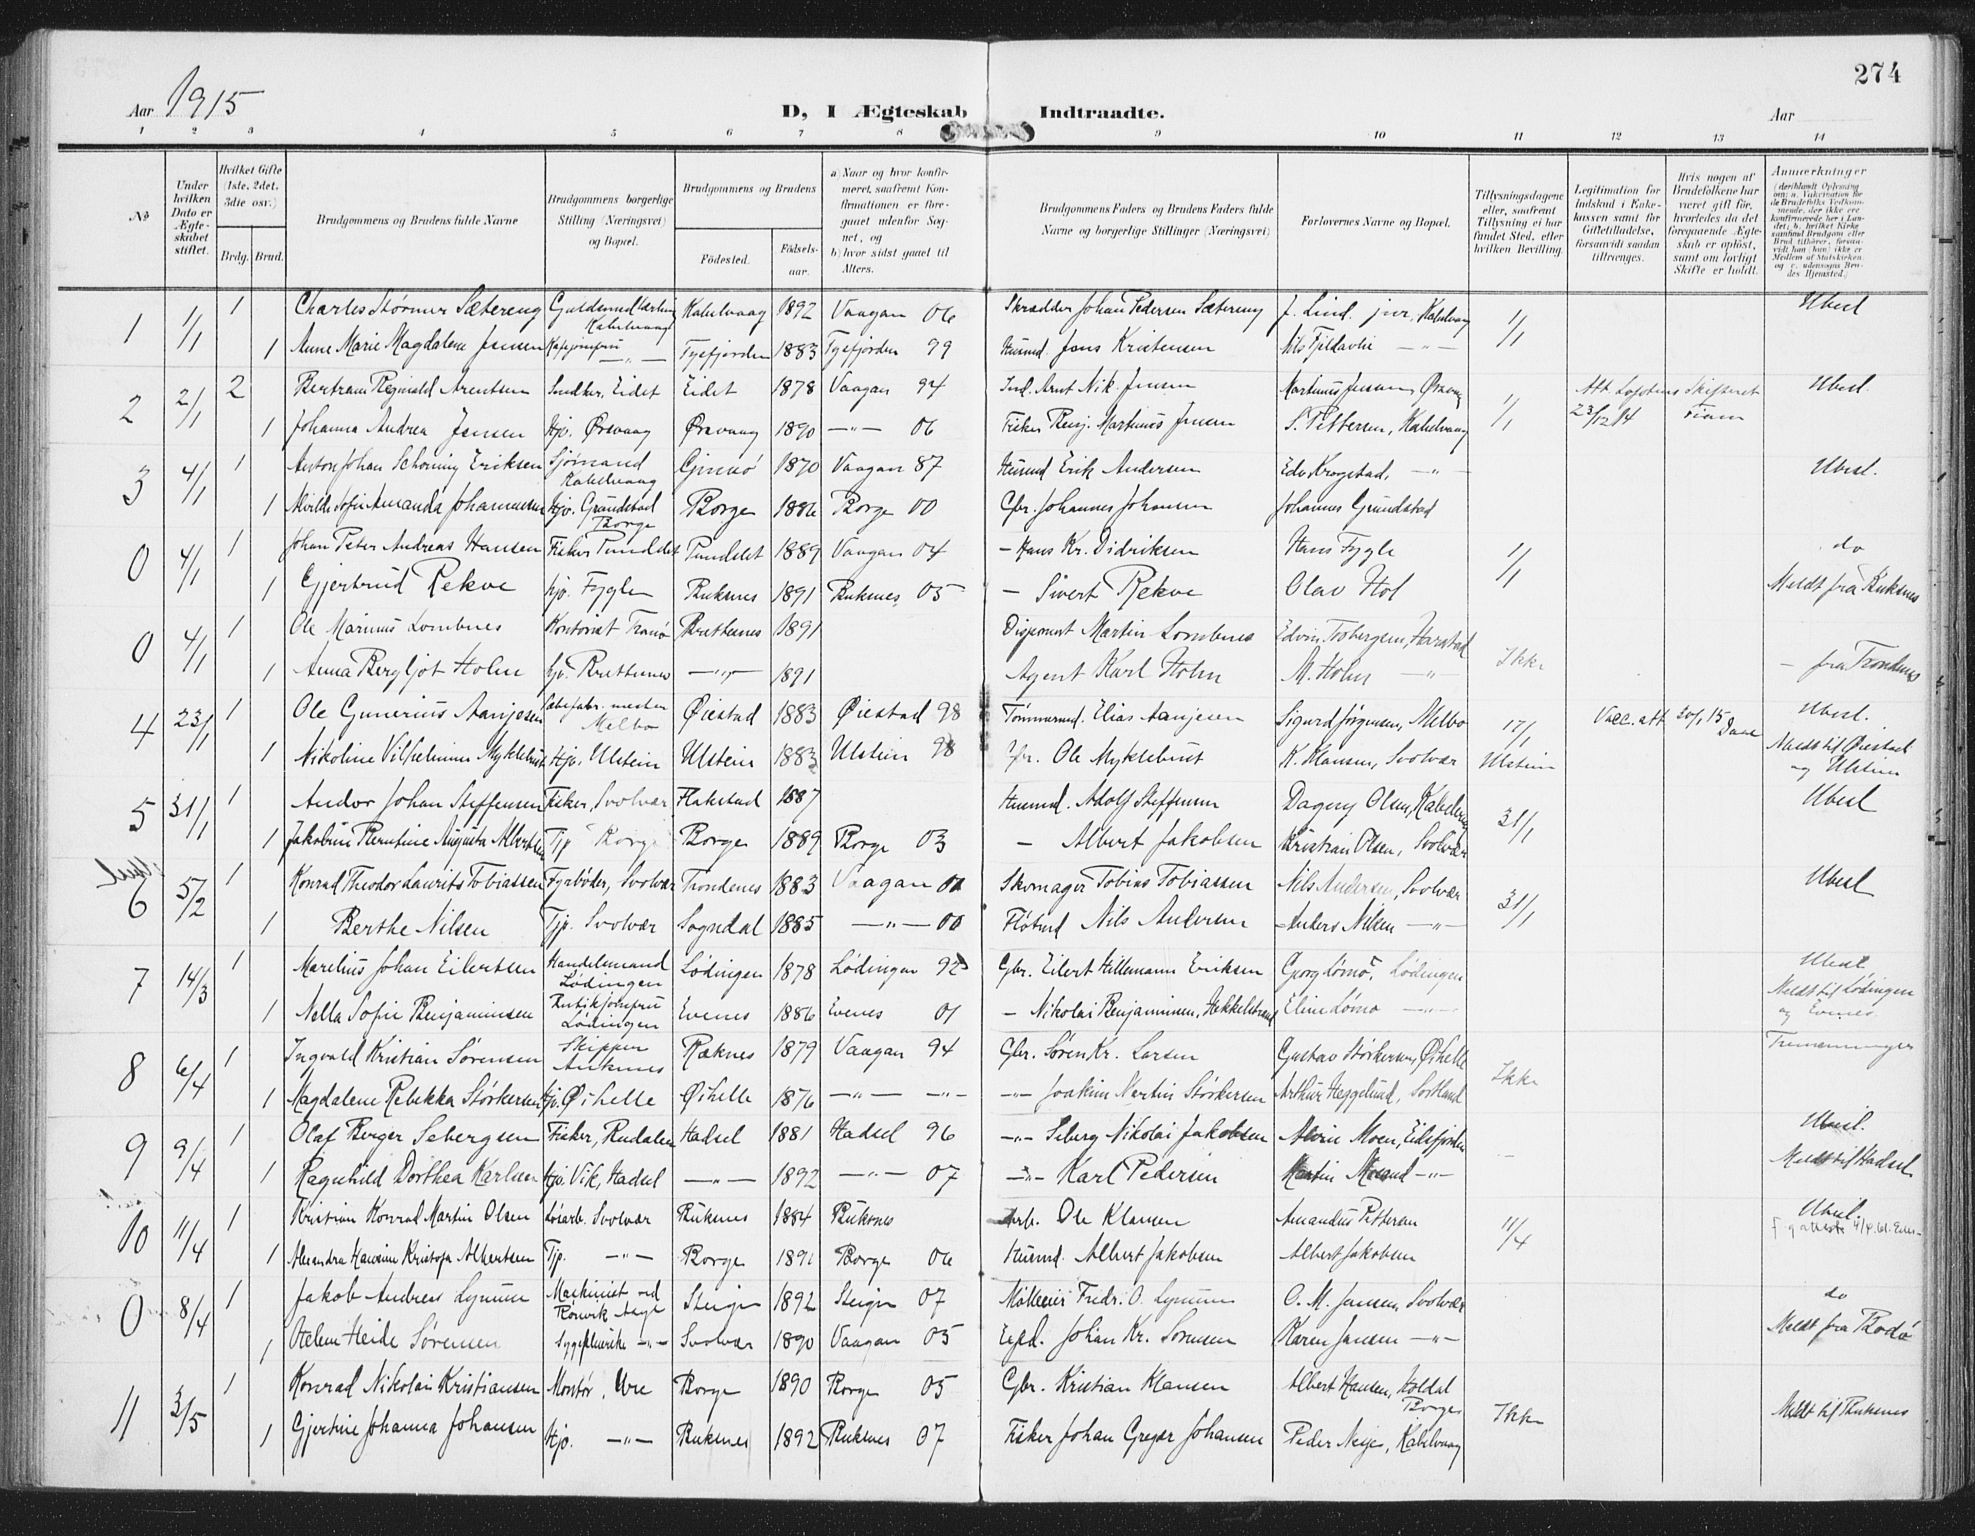 274
Aar 1915
D, I Ægteskab Indtraadte.
Aar
1 2 3 4 5 6 7 8 9 10 11 12 13 14
No
Under hvilken Dato er Ægteskabet stiftet.
Hvilket Gifte (1ste, 2det, 3die osv.)
Brdg. Brud.
Brudgommens og Brudens fulde Navne
Brudgommens borgerlige Stilling (Næringsvei) og Bopæl.
Brudgommens og Brudens
Fødested.
Fødselsaar.
a) Naar og hvor konfirmeret, saafremt Konfirmationen er foregaaet udenfor Sognet, og
b) hvor sidst gaaet til Alters.
Brudgommens Faders og Brudens Faders fulde Navne og borgerlige Stillinger (Næringsvei)
Forlovernes Navne og Bopæl.
Tillysningsdagene eller, saafremt Tillysning ei har fundet Sted, efter hvilken Bevilling.
Legitimation for Indskud i Enkekassen samt for Giftetilladelse, forsaavidt saadan tiltrænges.
Hvis nogen af Brudefolkene har været gift før, hvorledes da det foregaaende Ægteskab er opløst, samt om lovligt Skifte er holdt.
Anmærkninger
1 1/1 1 Charles Størmer Sætereng Kabelvaag Kabelvaag 1892 Vaagan 06 Skrædder Johan Pedersen Sætereng J. Lind jnr, Kabelvaag 1/1 Ubesl
1 Anne Marie Magdalene Jensen — " — Tysfjorden 1883 Tysfjorden 99 Husmd. Jens Kristensen Nils — " —
2 2/1 2 Bertram Reginald Arentsen Eidet Eidet 1878 Vaagan 94 Ind. Arnt Nik. Jensen Martinus Jensen, Ørsvaag 1/1 Att. Lofotens Skifteret 23/12 14 Ubesl.
1 Johanna Andrea Jensen Hjv. Ørsvaag Ørsvaag 1890 — " — 06 Fisker Benj. Martinus Jensen S. Pettersen, Kabelvaag
3 4/1 1 Anton Johan Schøning Eriksen Sjømand Kabelvaag Gimsø 1870 Vaagan 87 Husmd Erik Andersen Edv. Krogstad, — " — Ubesl.
1 Alvilde Sofie Amanda Johannessen Hjv. Grundstad Borge Borge 1886 Borge 00 Gbr. Johannes Johansen Johannes Grundstad
0 4/1 1 Johan Peter Andreas Hansen Fisker Pundslet Pundslet 1889 Vaagan 04 — Hans Kr. Didriksen Hans Fygle 1/1 do
1 Gjertrud Rekve Hjv. Fygle Buksnes 1891 Buksnes 05 — Sivert Rekve Olav Hol Meldt fra Buksnes
0 4/1 1 Ole Marinus Lombnes Kontorist Tranø Brettesnes 1891 Disponent Martin Lombnes Edvin Torbergsen, Harstad Ikke
1 Anna Bergljot Holm Hjv. Brettesnes — " — 1891 Agent Karl Holm M. Holm — " — — fra Trondenes
4 23/1 1 Ole Gunerius Aanjesen Melbo Øiestad 1883 Øiestad 98 Tømmermd. Elias Aanjesen Sigurd Jørgensen, Melbo 17/1 Vacc. att. 20/1 15 Ubesl.
1 Nikoline Vilhelmine Myklebust Hjv. Ulstein Ulstein 1883 Ulstein 98 Gbr. Ole Myklebust K. Hansen, Svolvær Ulstein Meldt til Øiestad og Ulstein
5 31/1 1 Andor Johan Steffensen Fisker, Svolvær Flakstad 1887 Husmd. Adolf Steffensen Dagny Olsen, Kabelvaag 31/1 Ubesl
1 Jakobine Berntine Augusta Albertsen Tjp Borge Borge 1889 Borge 03 — Albert Jakobsen Kristian Olsen, Svolvær
6 5/2 1 Konrad Theodor Laurits Tobiassen Fyrbøder, Svolvær Trondenes 1883 Vaagan Skomager Tobias Tobiassen Nils Andersen, Svolvær 31/1 Ubesl
1 Berthe Nilsen Tjp. Svolvær Sogndal 1885 — " — 00 Nils Andersen Anders Nilsen — " —
7 14/3 1 Marelius Johan Eilertsen Handelsmand Lødingen Lødingen 1878 Lødingen 92 Gbr. Eilert Hillemann Eriksen Georg Lømo, Lødingen Ubesl.
1 Nella Sofie Benjaminsen Butikjomfru Lødingen Evenes 1886 Evenes 01 — Nikolai Benjaminsen, Hekkelstrand Eline Lømo — " — Meldt til Lødingen og Evenes
8 6/4 1 Ingvald Kristian Sørensen Skipper Ræknes 1879 Vaagan 94 Gbr. Søren Kr. Larsen Gustav Størkersen, Øihelle Ikke Tremenninger
1 Magdalene Rebekka Størkersen Hjv. Øihelle Øihelle 1876 — " — — " — — " — Joakim Martin Størkersen Arthur Heggelund, Sortland
9 9/4 1 Olaf Berger Sebergsen Fisker, Hadsel 1881 Hadsel 96 — " — Seberg Nikolai Jakobsen Alvin Moen, Eidsfjorden Ubesl.
1 Ragnhild Dorthea Karlsen Hjv. Vik, Hadsel — " — 1892 — " — 07 — " — Karl Pedersen Martin — " — Meldt til Hadsel
10 11/4 1 Kristian Konrad Martin Olsen Løsarb. Svolvær Buksnes 1884 Buksnes Arb. Ole Klausen Amandus Pettersen 11/4 Ubesl.
1 Alexandra Kristofa Albertsen Tjp. — " — Borge 1891 Borge 06 Husmd. Albert Jakobsen Albert Jakobsen
0 8/4 1 Jakob Andreas Lynum Maskinist ved Steigen 1892 Steigen 07 Fredr. O. Lynum O. M. Jansen, Svolvær do
1 Heide Sørensen — " — Svolvær 1890 Vaagan 05 Exped. Johan Kr. Sørensen Karen Jansen — " — Meldt fra Bodø
11 3/5 1 Konrad Nikolai Kristiansen Montør, Ure Borge 1890 Borge 05 Gbr. Kristian Klausen Albert Hansen, Holdal Borge Ikke Meldt til Buksnes
1 Gjertine Johanna Johansen Hjv. — " — Buksnes 1892 Buksnes 07 Fisker Johan Greger Johansen Peder Kabelvaag